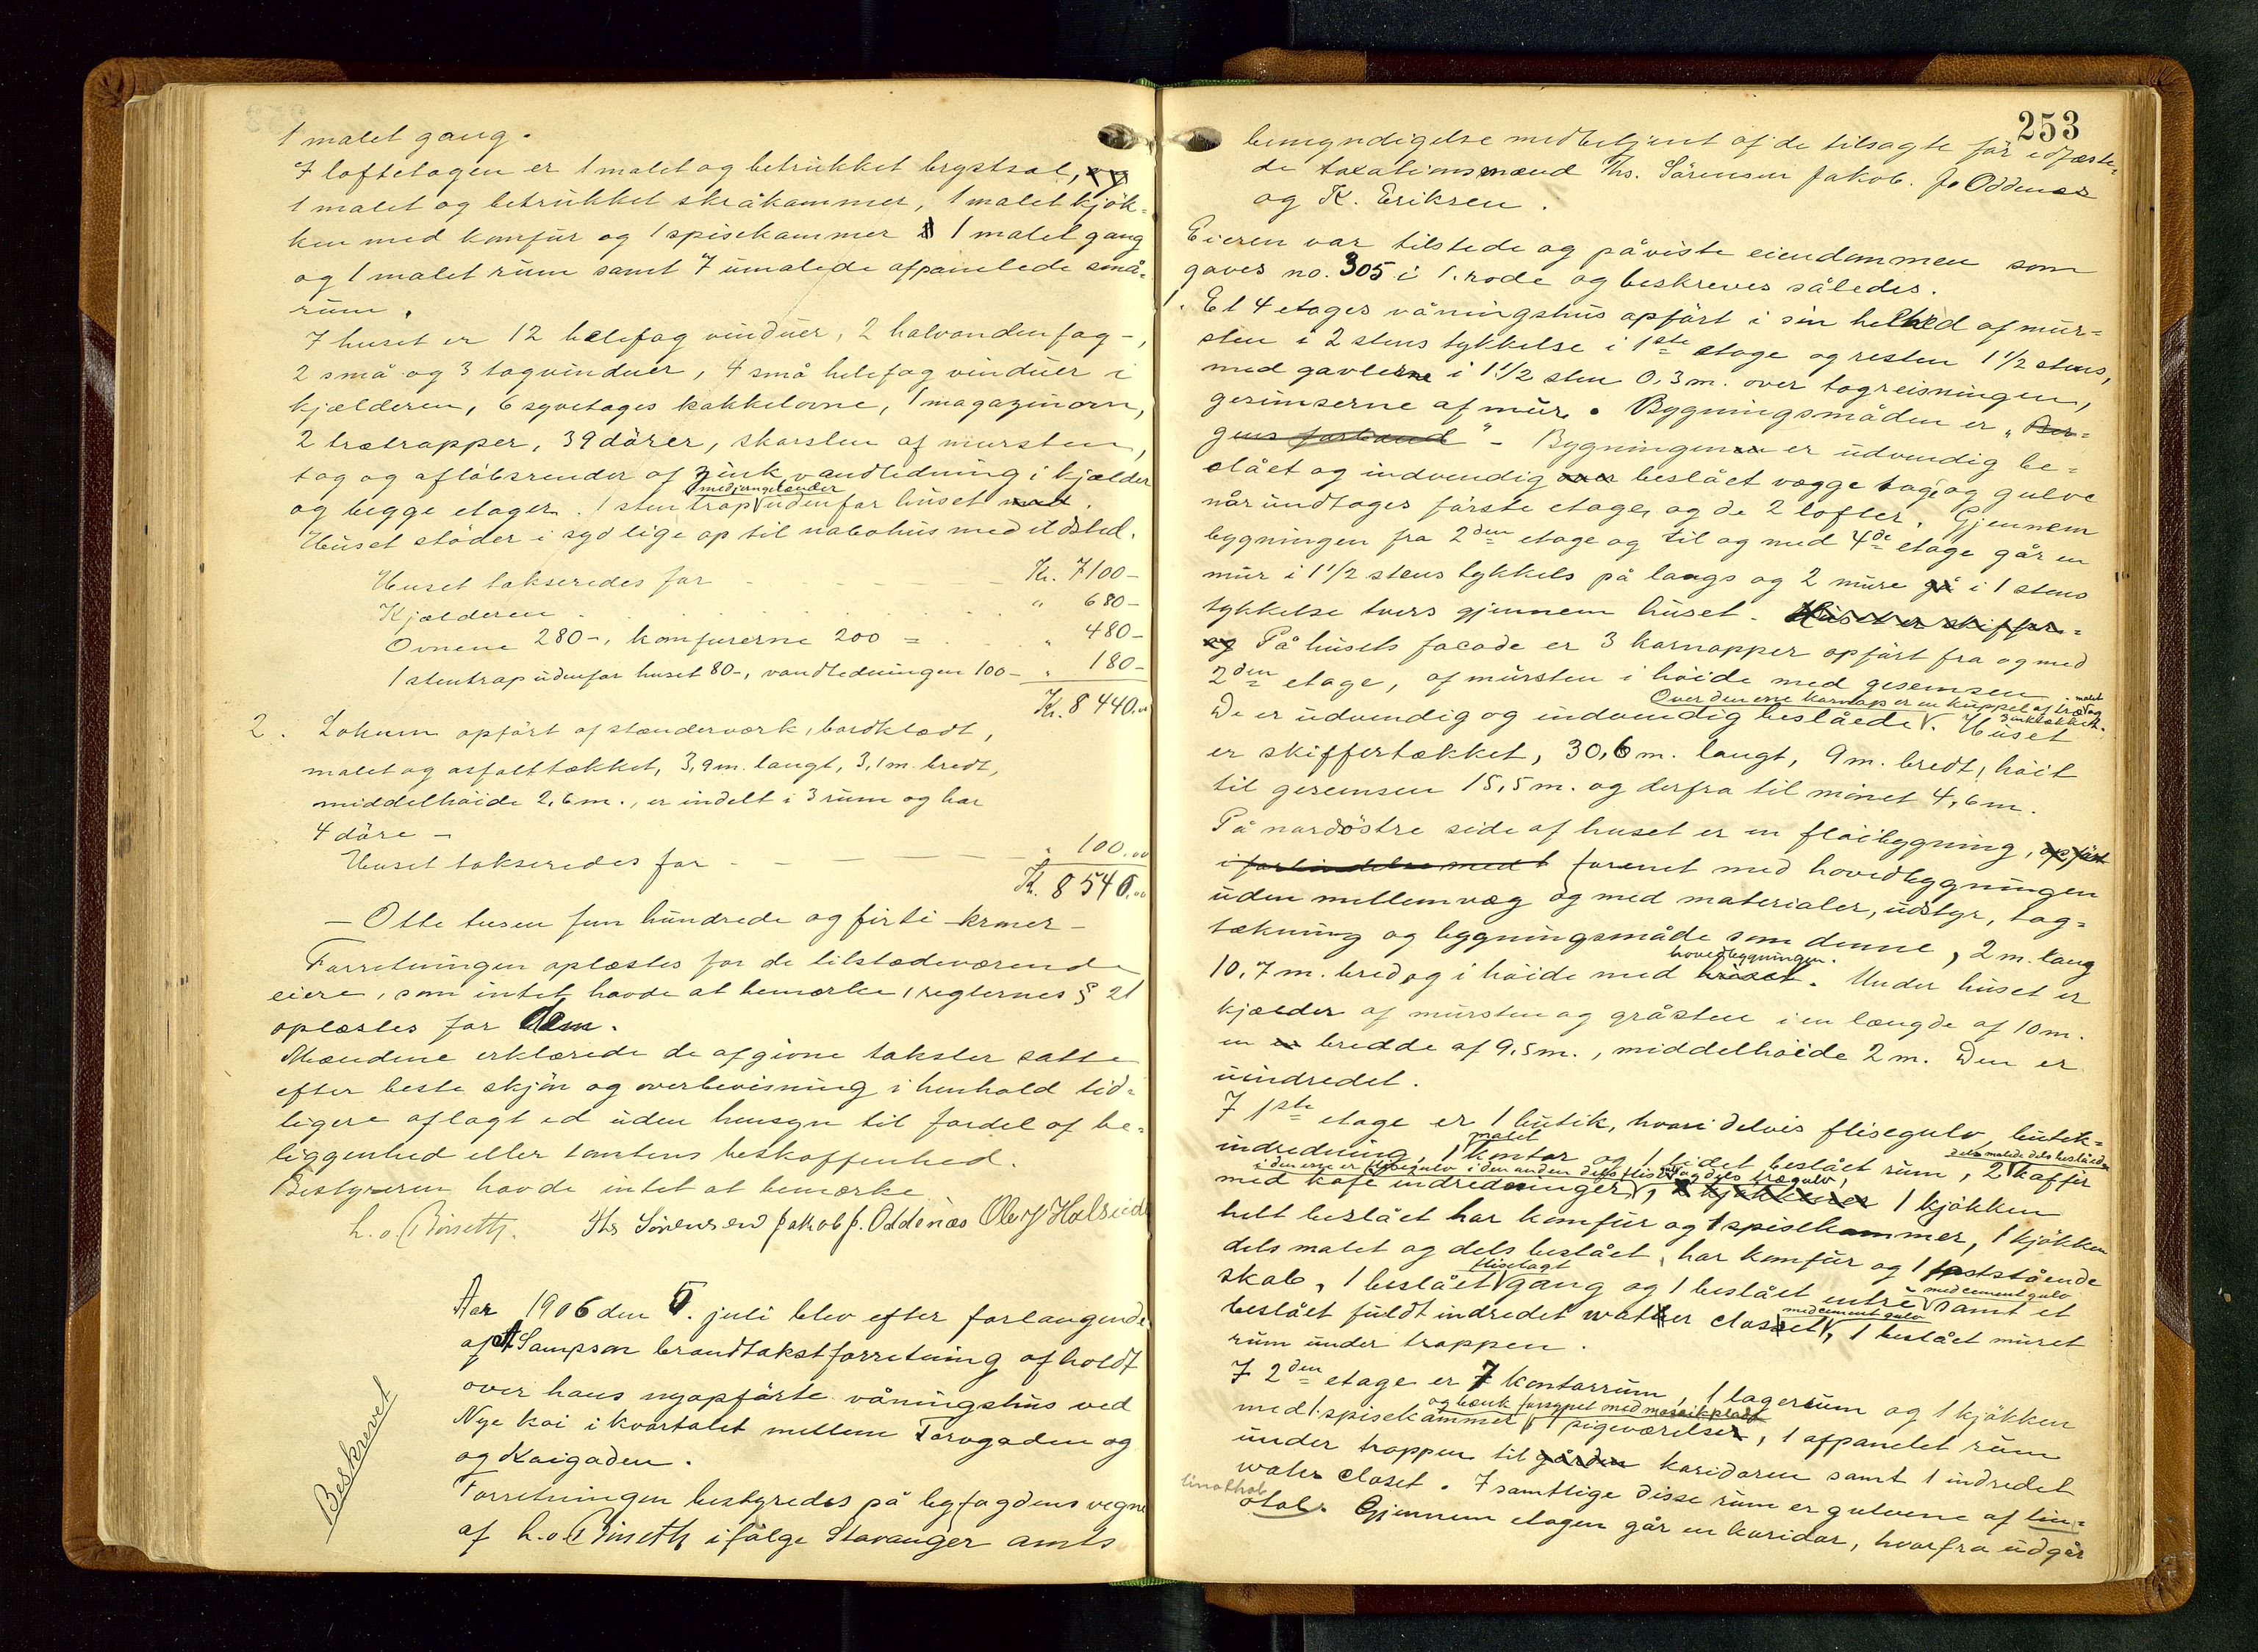 1 malet gang.
I loftetagen er 1 malet og betrükket brystsal, og
1 malet og betrükket skråkammer, 1 malet kjök-
ken med komfür og 1 spisekammer 1 malet gang
og 1 malet rüm samt 7 ümalede afpanelede små-
rüm.
I huset er 12 helefag vindüer, 2 halvandenfag -,
2 små og 3 tagvindüer, 4 små helefag vindüer i
kjælderen, 6 syvetages kakkelovne, 1 magazinovn,
2 trætrapper, 39 dörer, skorsten af mursten,
tag og aflöbsrender af zink vandledning i kjælder
og begge etager. 1 stentrap med jerngelænder üdenfor hüset med.
Hüset stöder i syd lige op til nabohüs med ildsted.
Huset takseredes for - - - Kr. 7100-
Kjælderen . . . " 680-
Ovnene 280-, komfurerne 200 = . . " 480-
1 stentrap üdenfor huset 80-, vandledningen 100- " 180-
Kr. 8440.00
2. Lokum opfört af stænderværk, bordklædt,
malet og asfalttækket, 3,9 m. langt, 3,1 m. bredt,
middelhöide 2,6 m., er indelt i 3 rüm og har
4 döre -
Huset takseredes for - - - " 100.00
Kr. 8540.00
- Otte tusen fem hündrede og firti kroner -
Forretningen oplæstes for de tilstedeværende
eiere, som intet havde at bemærke, reglernes § 21
oplæstes for dem.
Mændene erklærede de afgivne takster satte
efter beste skjön og overbevisning i henhold tid-
ligere aflagt ed üden hensyn til fordel af be-
liggenhed eller tomtens beskaffenhed.
Bestyreren havde intet at bemærke
L. o. Børseth. Ths Sörensen Jakob J. Oddenæs Ole J Halseide
Aar 1906 den 5. juli blev efter forlangende
af A Sampson brandtakstforretning afholdt
over hans nyopförte våningshüs ved
Nye kai i kvartalet mellem Torvgaden og
og Kaigaden.
Beskrevet
Forretningen bestyredes på byfogdens vegne
af L. o. Børseth ifölge Stavanger amts
253
bemyndigelse med betjent af de tilsagte för edfæste-
de taxationsmænd Ths. Sörensen Jakob. J. Oddenæs
og K. Eriksen.
Eieren var tilstede og påviste eiendommen som
gaves no. 305 i 1. rode og beskreves således.
1. Et 4 etages våningshüs opfört i sin helhed af mür-
sten i 2 stens tykkelse i 1ste etage og resten 1 1/2 stens,
med gavlerne i 1 1/2 sten 0,3 m. over tagreisningen,
gesimserne af mür. Bygningsmåden er "Ber-
gens forband" - Bygningen er üdvendig be-
slået og indvendig beslået vægge tag og gulve
når ündtages förste etage og de 2 lofter. Gjennem
bygningen fra 2den etage og til og med 4de etage går en
mür i 1 1/2 stens tykkels på langs og 2 müre gå i 1 stens
tykkelse tvers gjennem hüset. Hüset er skiffer-
og På hüsets facade er 3 karnapper opfört fra og med
2den etage, af mürsten i höide med gesemsen.
Over den ene karnap er en küppel af træ malet og zinktækket.
De er üdvendig og indvendig beslåede. Hüset
er skiffertækket, 30,6 m. langt, 9 m. bredt, höit
til gesemsen 15,5 m. og derfra til mönet 4,6 m.
På nordöstre side af huset er en flöibygning, opfört
i forbindelse med forenet med hovedbygningen
üden mellemvæg og med materialer, üdstyr, tag-
tækning og bygningsmåde som denne, 2 m. lang
10,7 m. bred og i höide med hüset hovedbygningen. Under hüset er
kjælder af mürsten og gråsten i en længde af 10 m.
en bredde af 9,5 m., middelhöide 2 m. Den er
üindredet.
I 1ste etage er 1 bütik, hvori delvis flisegulv, bütik-
indredning, 1 malet kontor og 1 lidet beslået rüm, 2 dels malede dels beslåede kaffir
i den ene er flisegulv i den anden dels flisegulv og dels trægulv,
med kafe indredninger, 2 kjökkener 1 kjökken
helt beslået har komfür og 1 spisekammer, 1 kjökken
dels malet og dels beslået, har komfür og 1 fastståénde
skab, 1 beslået fliselagt gang og 1 beslået entré med cementgulv samt et
beslået füldt indredet water closet med cementgulv, 1 beslået müret
rüm ünder trappen.
I 2den etage er 7 kontorrüm, 1 lagerrüm og 1 kjökken
og bænk forsynet med mosaikplade
med 1 spisekammer, 1 pigeværelse, 1 afpanelet rüm
ünder trappen til gården koridoren samt 1 indredet
water closet. I samtlige disse rüm er gulvene af lin-
linothol
otol. Gjennem etagen går en koridor, hvorfra üdgår